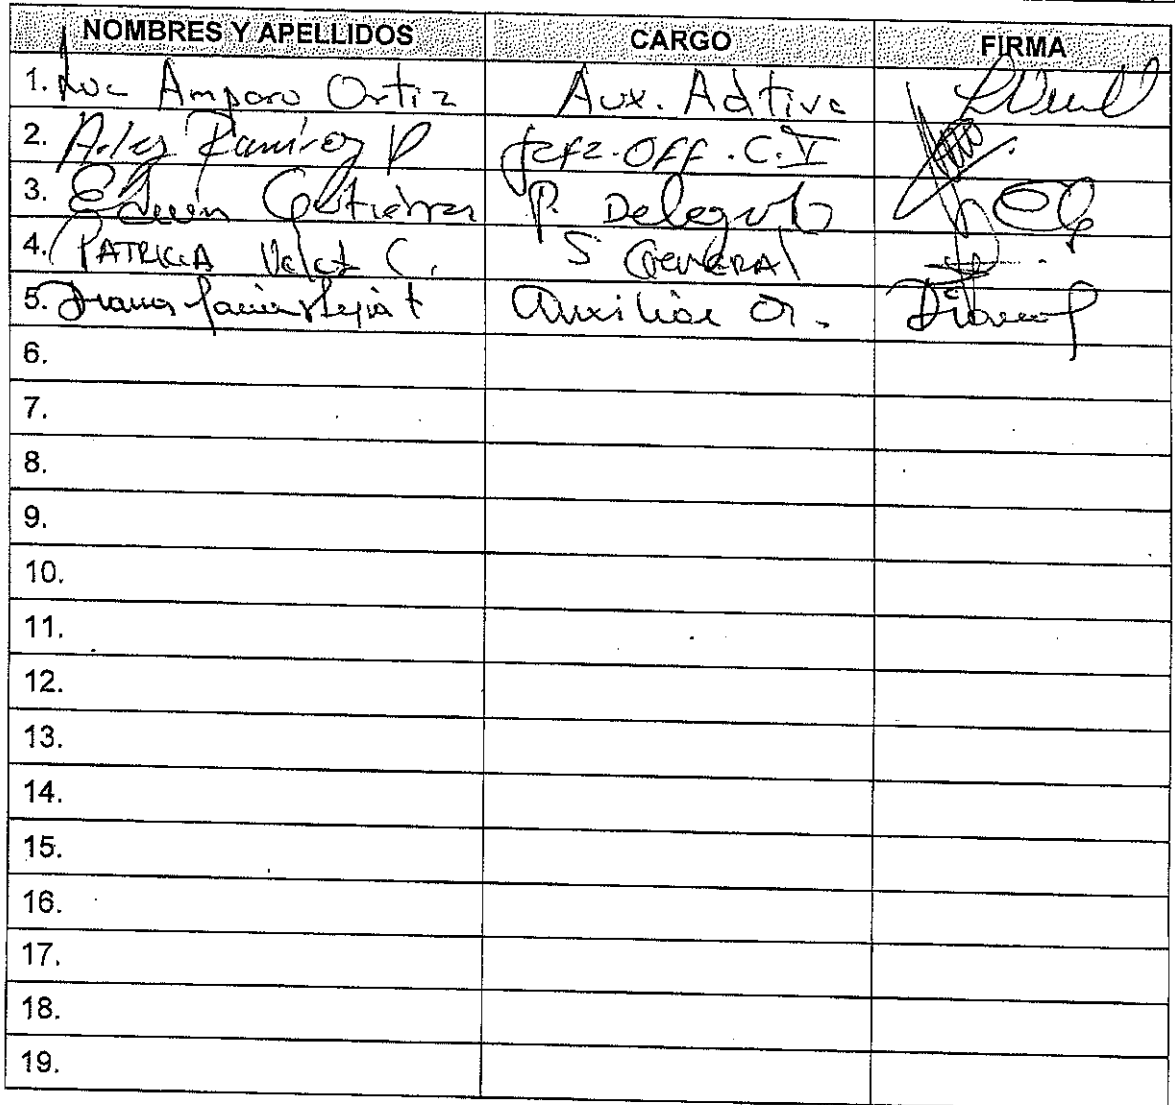 NOMBRES Y APELLIDOS CARGO FIRMA
1. Luz Amparo Ortiz Aux. Adtiva
2. Ramírez P Jefe. Off. C.I
3. Edwin Gutiérrez P. Delegado
4. PATRICIA Velez C. S GENERAL
5. Mejía Auxiliar
6.
7.
8.
9.
10.
11.
12.
13.
14.
15.
16.
17.
18.
19.